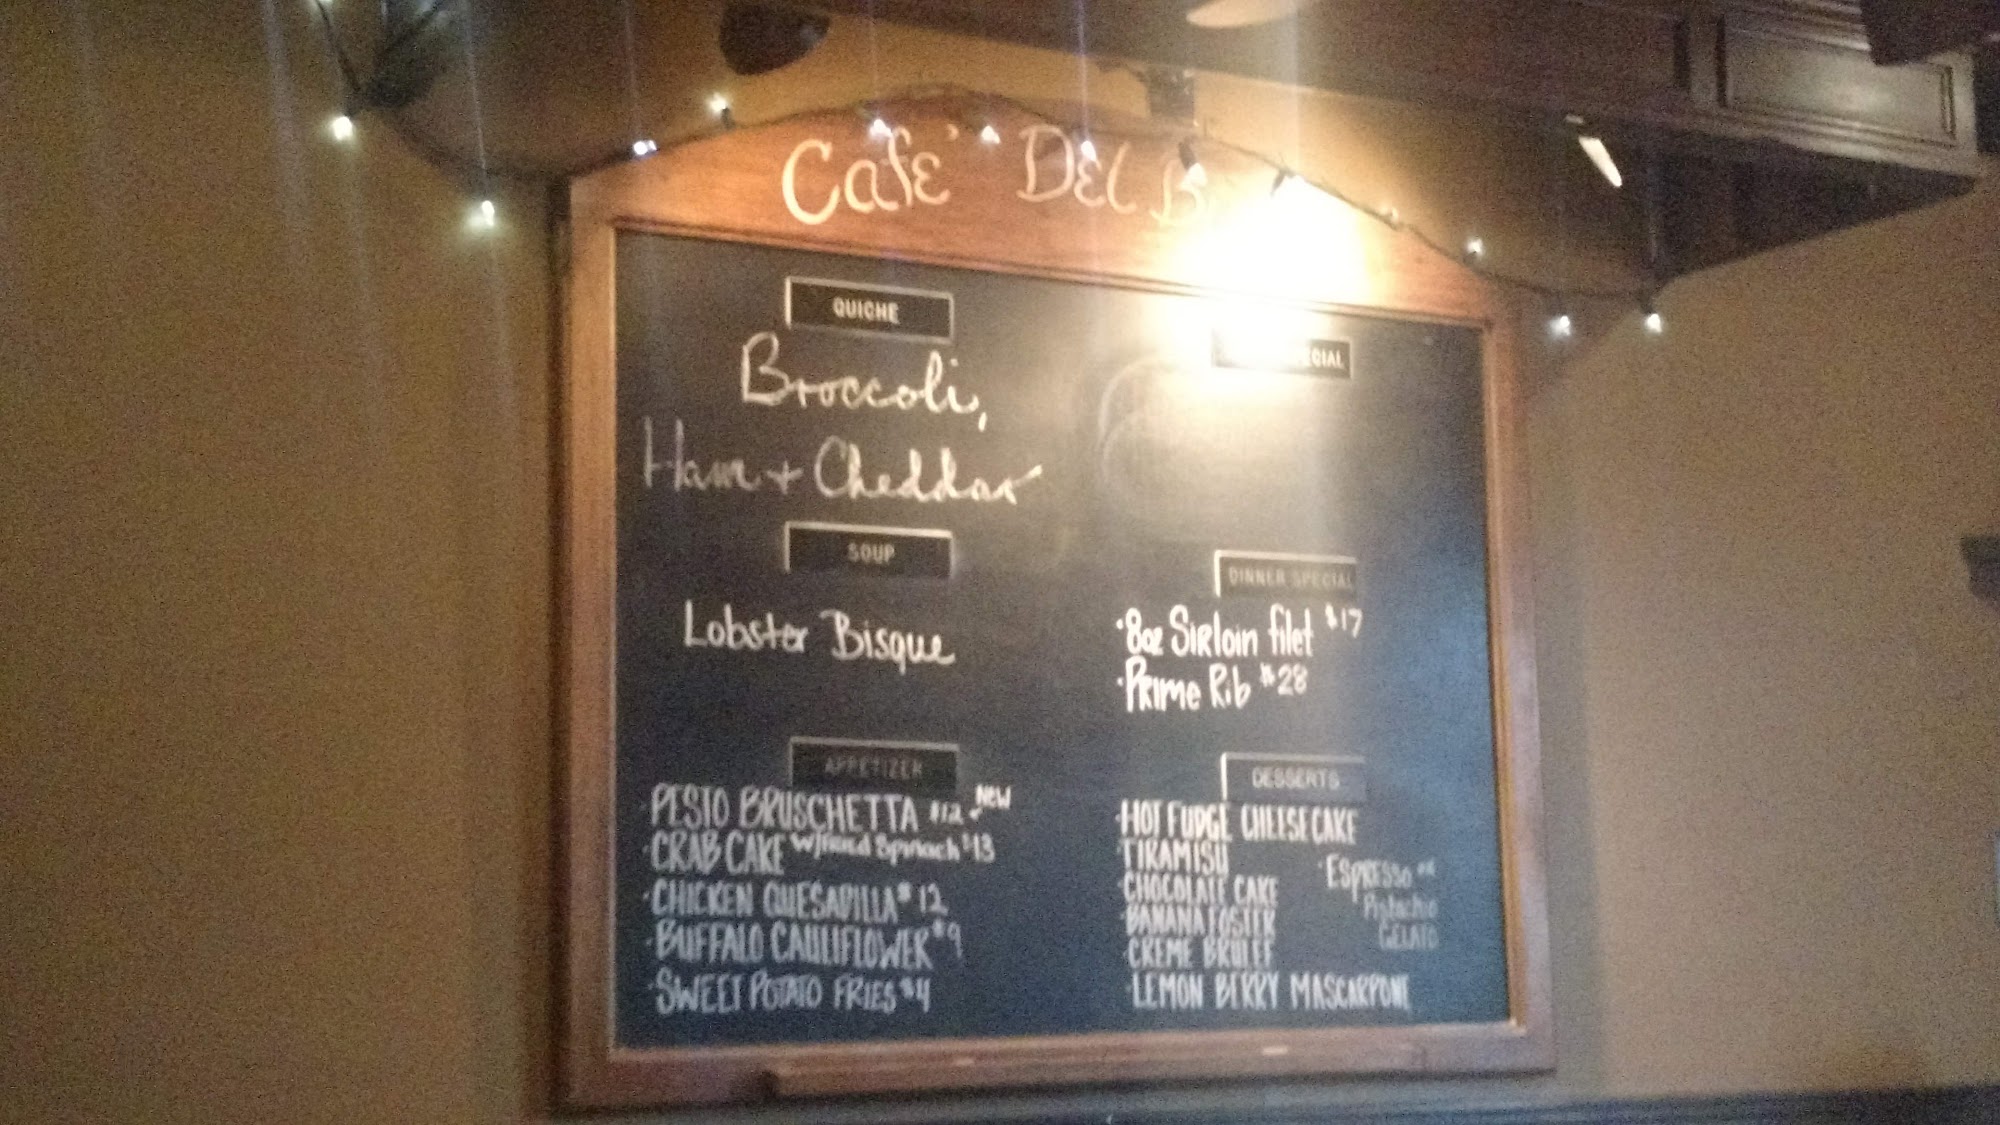 Café Del
QUICHE
Broccoli,
Ham + Cheddar
SOUP
Lobster Bisque
APPETIZER
• PESTO BRUSCHETTA $12 NEW
• CRAB CAKE w/ Spinach $13
• CHICKEN QUESADILLA $12
• BUFFALO CAULIFLOWER $9
• SWEET POTATO FRIES $4
SPECIAL
DINNER SPECIAL
• 8oz Sirloin filet $17
• Prime Rib $28
DESSERTS
• HOT FUDGE CHEESECAKE
• TIRAMISU
• CHOCOLATE CAKE
• BANANA FOSTER
• CREME BRULEE
• LEMON BERRY MASCARPONE
• ESPRESSO OR
Pistachio
GELATO